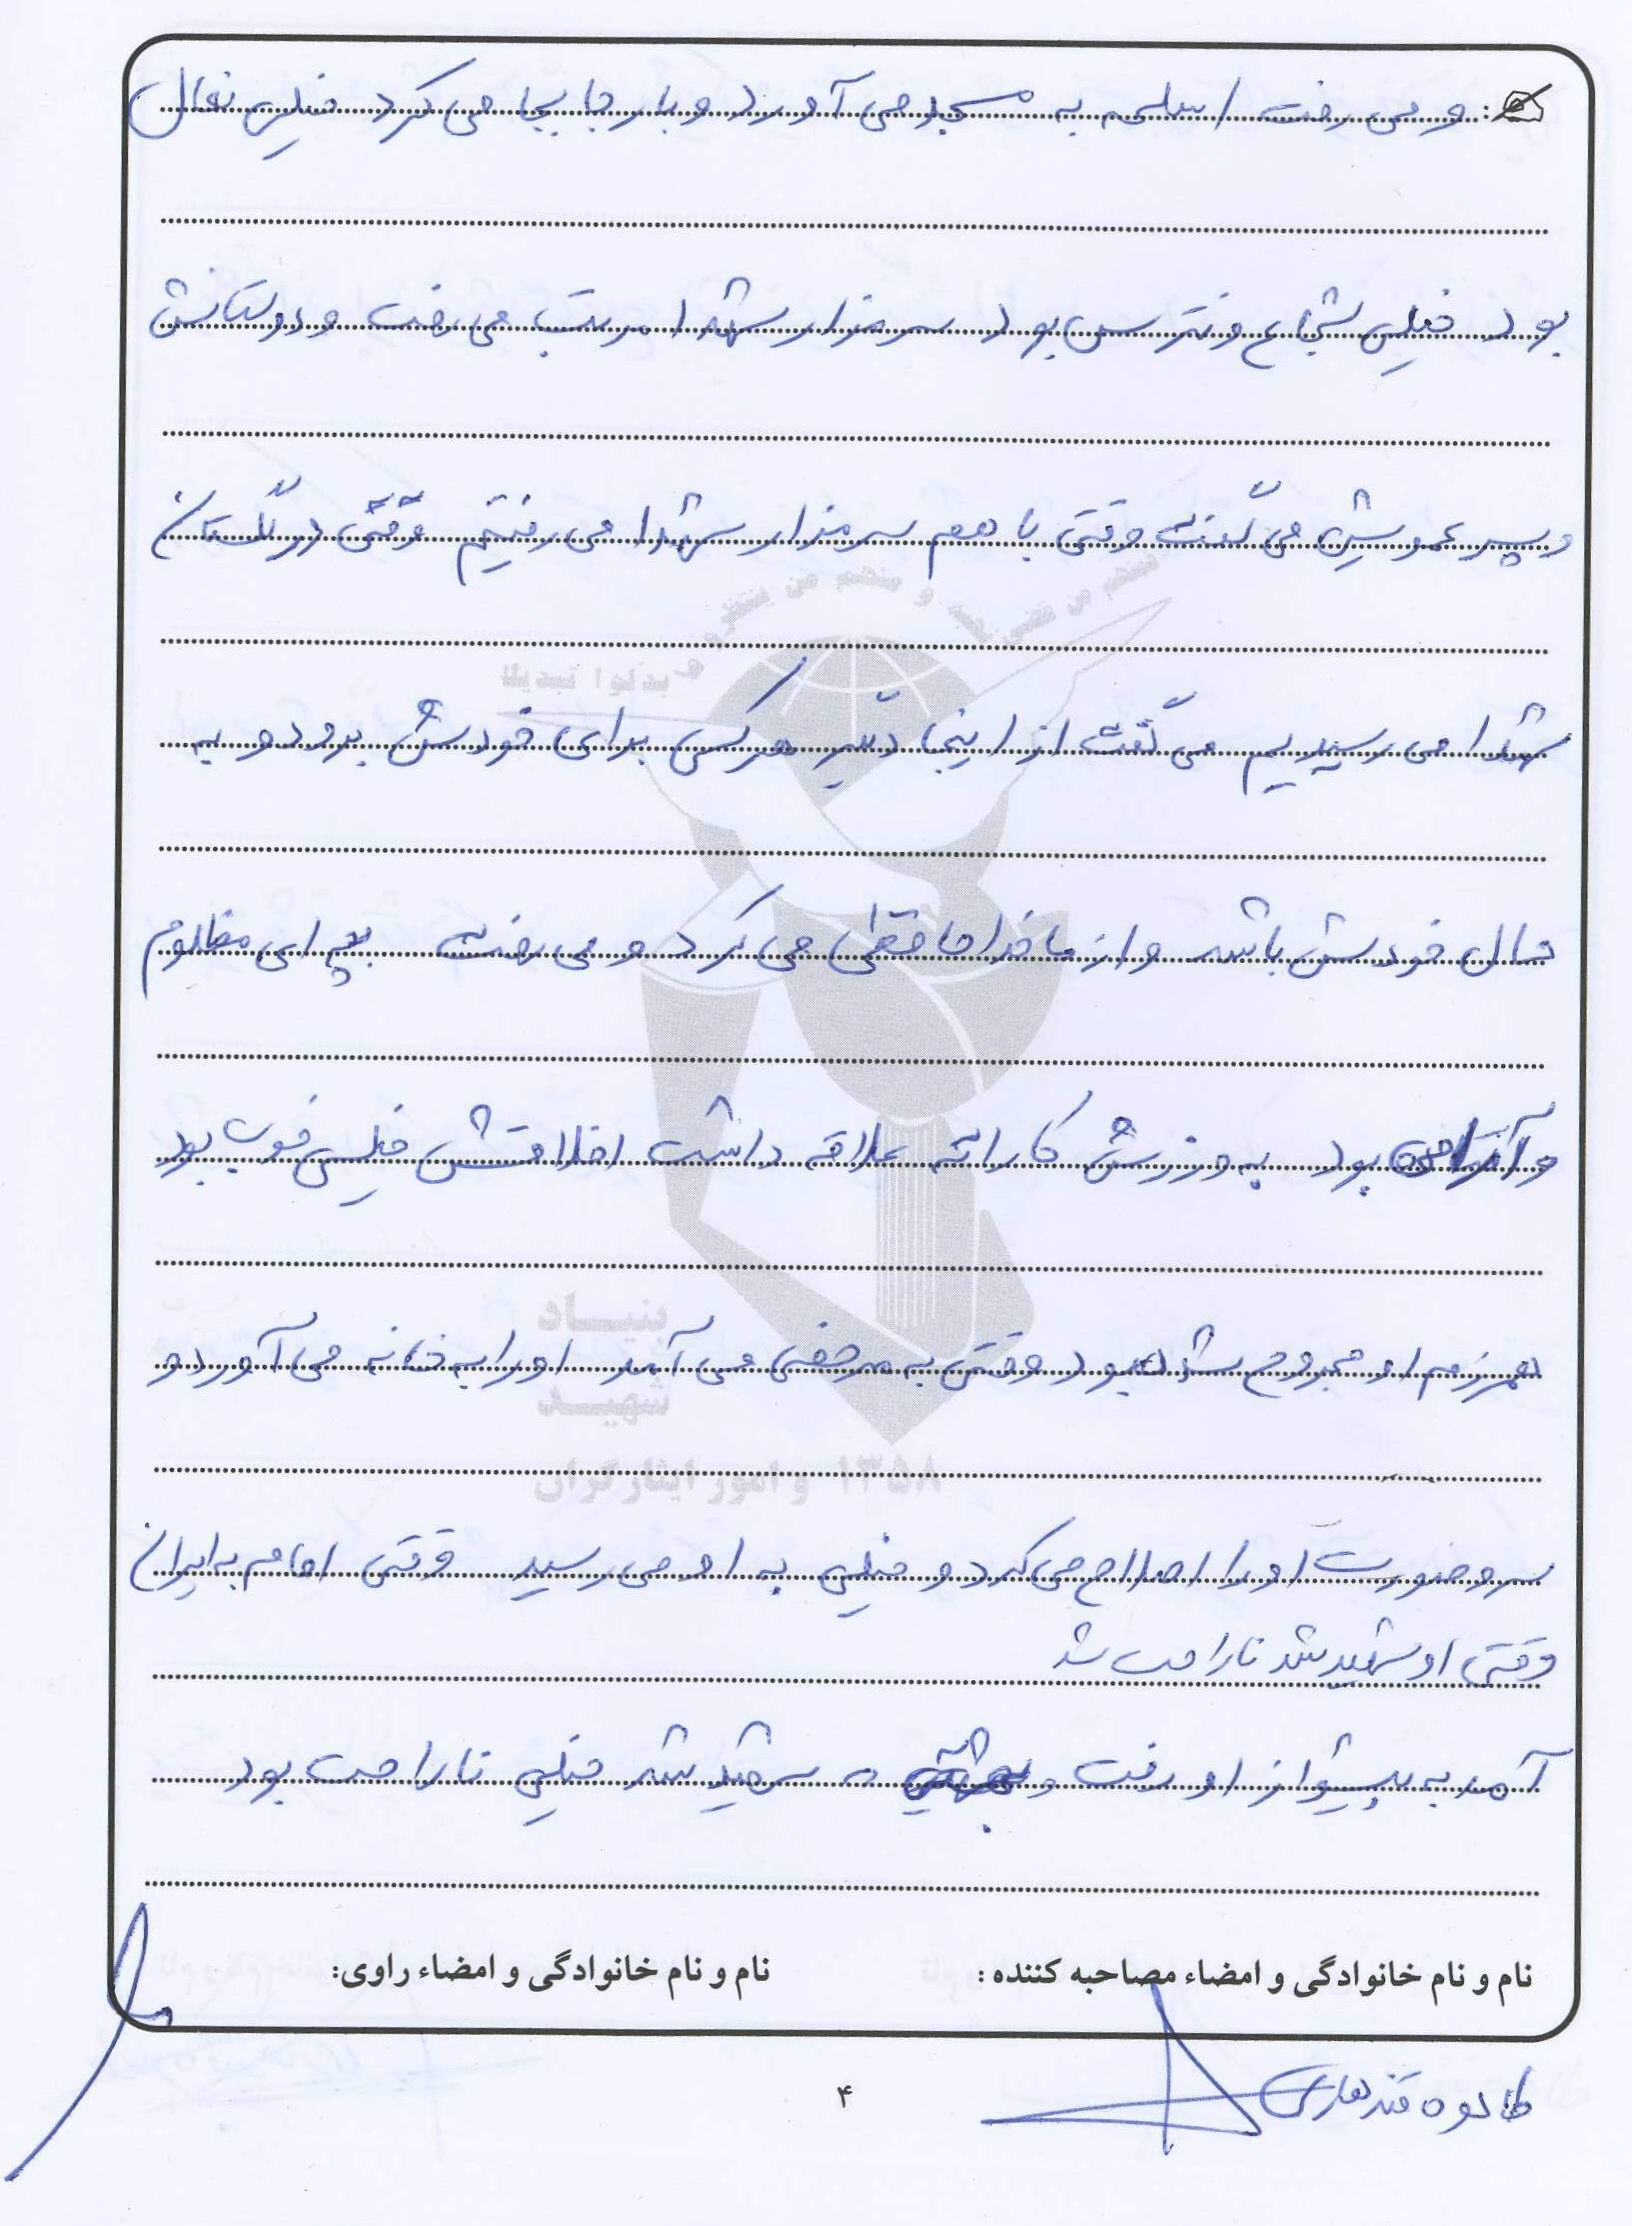 و می رفت اسلحه به مسجد می آورد و بار جا بجا می کرد خیلی فعال
بود خیلی شجاع و نترس بود سر مزار شهدا مرتب می رفت و دوستانش
و پسر عمویش می گفت وقتی با هم سر مزار شهدا می رفتیم وقتی در گلستان
شهدا می رسیدیم می گفت از اینجا دگیر هرکسی برای خودش برود و به
حال خودش باشد و از ما خداحافظی می کرد و می رفت بچه ای مظلوم
و آرامی بود به ورزش کاراته علاقه داشت اخلاقش خیلی خوب بود
همرزم او مجروح شده بود وقتی به مرخصی می آمد او را به خانه می آورد و
سر و صورت او را اصلاح می کرد و خیلی به او می رسید وقتی امام به ایران
وقتی او شهید شد ناراحت شد
آمد به پیشواز او رفت و شهید شد خیلی ناراحت بود
نام و نام خانوادگی و امضاء مصاحبه کننده :
نام و نام خانوادگی و امضاء راوی:
قندهاری
۴
بنیاد
شهید
و امور ایثارگران ۱۳۵۸